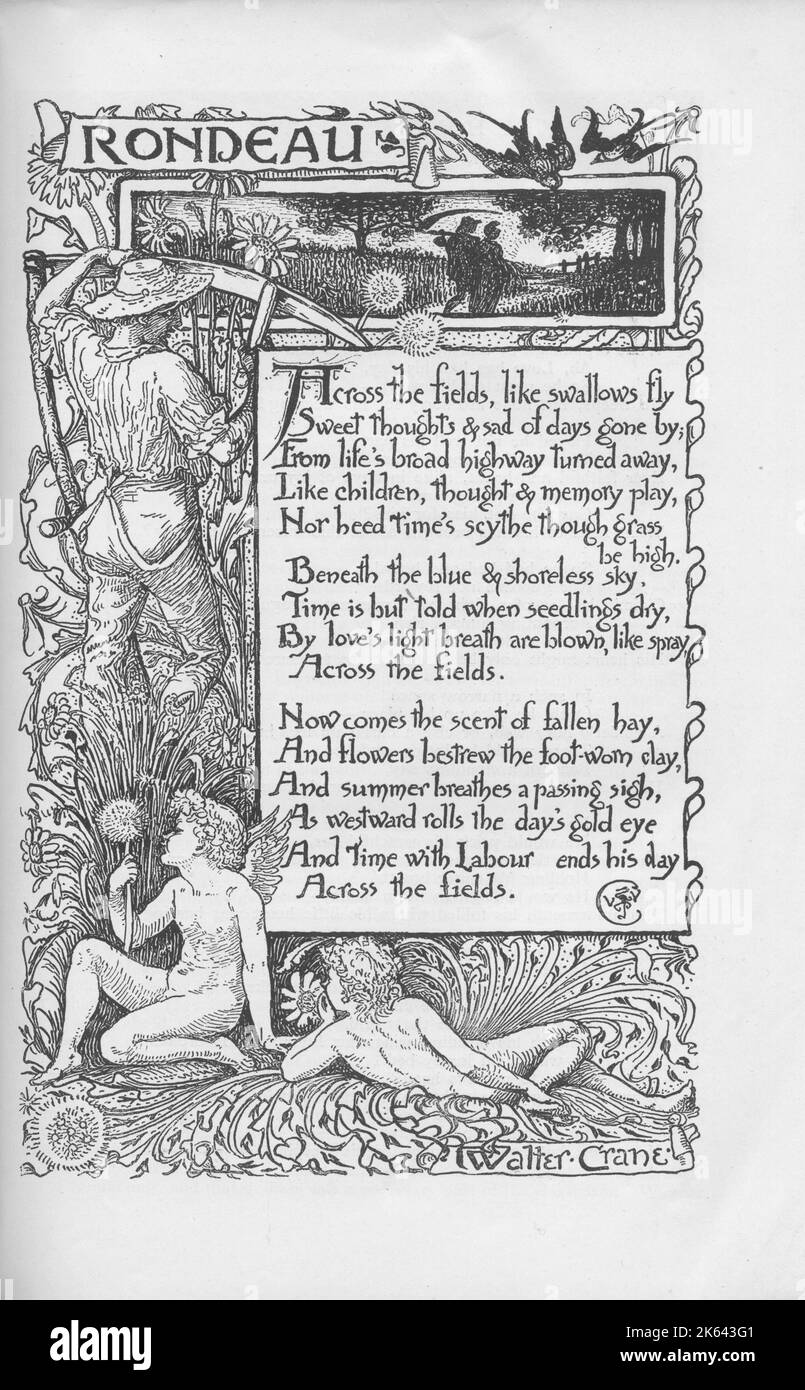 RONDEAU
Across the fields, like swallows fly
Sweet thoughts & sad of days gone by;
From life's broad highway turned away,
Like children, thought & memory play,
Nor heed Time's scythe though grass
be high.
Beneath the blue & shoreless sky,
Time is but told when seedlings dry,
By love's light breath are blown, like spray,
Across the fields.
Now comes the scent of fallen hay,
And flowers bestrew the foot-worn clay,
And summer breathes a passing sigh,
As westward rolls the day's gold eye
And Time with Labour ends his day
Across the fields.
Walter · Crane ·
alamy
Image ID: 2K643G1
www.alamy.com